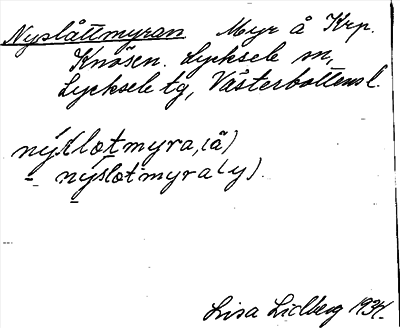 Nyslåttmyran Myr å Krp.
Knösen. Lycksele sn,
Lycksele tg, Västerbottensl.
nýslotmyra, (ä)
nýslotmyra (y).
Lisa Lidberg 1934.